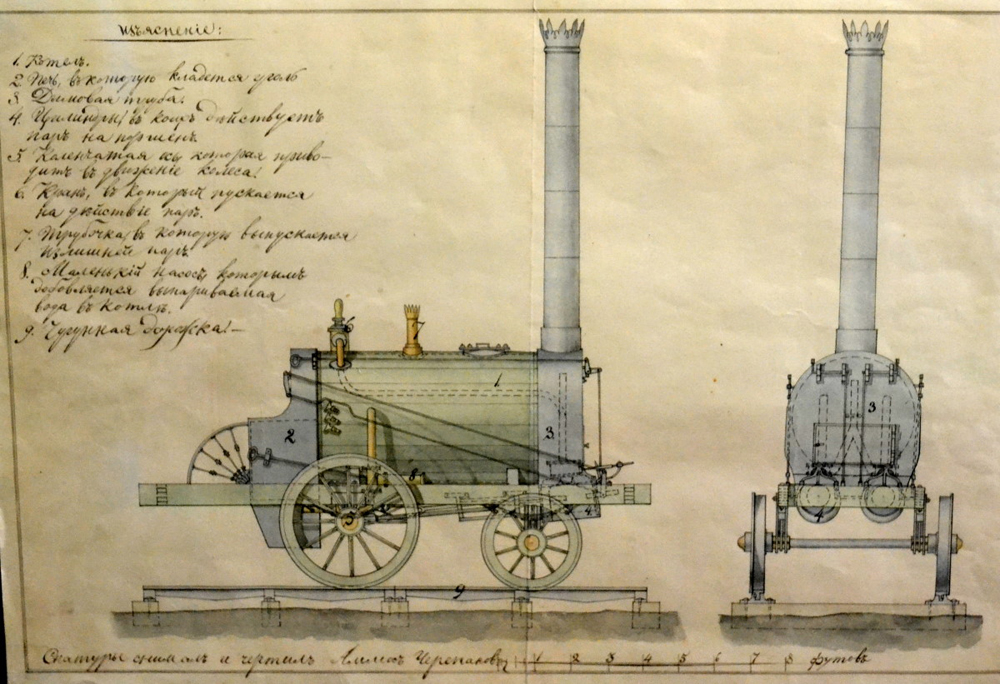 изъясненіе:
1. Котелъ.
2. Печь, въ которую кладется уголь
3. Дымовая труба.
4. Цилиндры въ коихъ дѣйствуетъ
паръ на поршень.
5. Коленчатая которая приво-
дитъ въ движеніе колеса.
6. Кранъ, въ который пускается
на дѣйствіе паръ.
7. Трубочка, въ которую выпускается
излишней паръ.
8. Маленькій насосъ, которымъ
добовляется выпариваемая
вода въ котлѣ.
9. Чугунная дорожка.—
7
1
2
3
3
8
5
4
4
9
Снатуры снималъ и чертилъ Черепановъ 1 2 3 4 5 6 7 8 футовъ